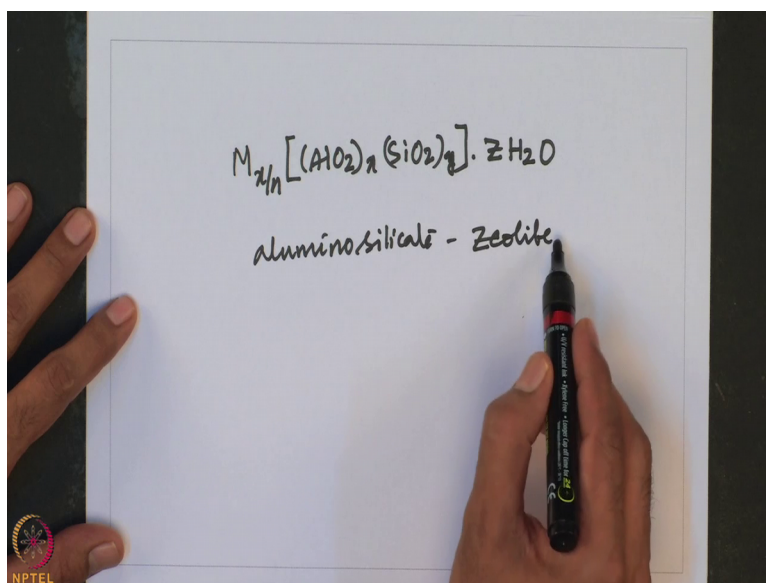 M x/n [(AlO2)x (SiO2)y] . Z H2O
aluminosilicate - Zeolite
NPTEL